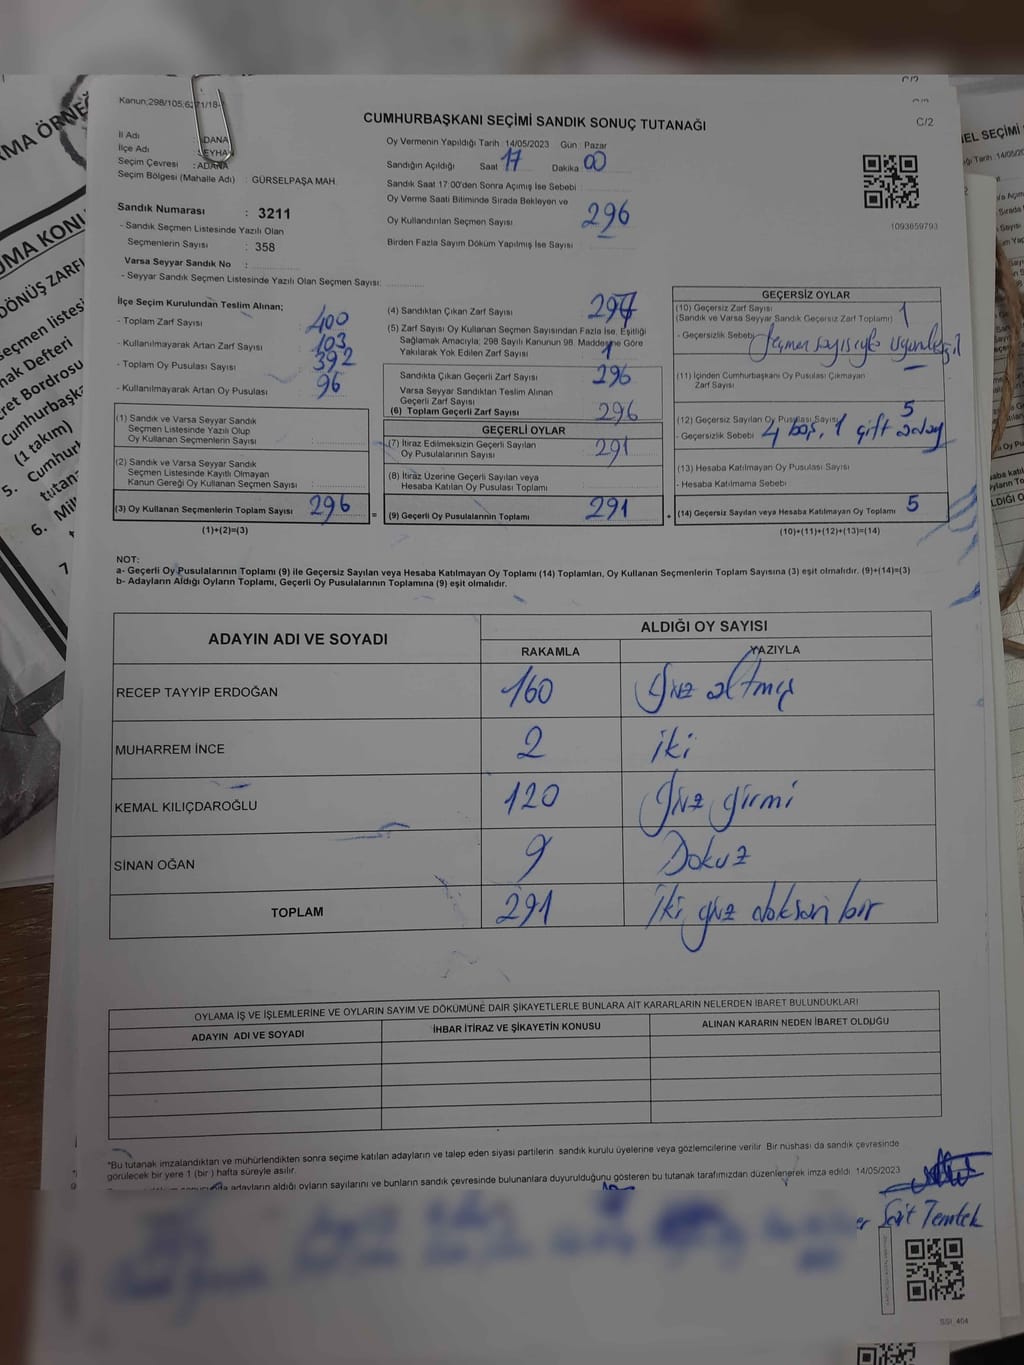 Kanun;298/105;6271/18-
CUMHURBAŞKANI SEÇİMİ SANDIK SONUÇ TUTANAĞI
C/2
İl Adı : ADANA
İlçe Adı : SEYHAN
Seçim Çevresi : ADANA
Seçim Bölgesi (Mahalle Adı) : GÜRSELPAŞA MAH.
Oy Vermenin Yapıldığı Tarih 14/05/2023 Gün Pazar
Sandığın Açıldığı Saat 17 Dakika 00
Sandık Saat 17:00'den Sonra Açımış İse Sebebi
Oy Verme Saati Bitiminde Sırada Bekleyen ve
Oy Kullandırılan Seçmen Sayısı 296
Birden Fazla Sayım Döküm Yapılmış İse Sayısı
1093659793
Sandık Numarası : 3211
- Sandık Seçmen Listesinde Yazılı Olan
Seçmenlerin Sayısı : 358
Varsa Seyyar Sandık No :
- Seyyar Sandık Seçmen Listesinde Yazılı Olan Seçmen Sayısı:
İlçe Seçim Kurulundan Teslim Alınan;
- Toplam Zarf Sayısı : 400
- Kullanılmayarak Artan Zarf Sayısı : 103
- Toplam Oy Pusulası Sayısı : 392
- Kullanılmayarak Artan Oy Pusulası : 96
(1) Sandık ve Varsa Seyyar Sandık
Seçmen Listesinde Yazılı Olup
Oy Kullanan Seçmenlerin Sayısı :
(2) Sandık ve Varsa Seyyar Sandık
Seçmen Listesinde Kayıtlı Olmayan
Kanun Gereği Oy Kullanan Seçmen Sayısı :
(3) Oy Kullanan Seçmenlerin Toplam Sayısı 296
(1)+(2)=(3)
(4) Sandıktan Çıkan Zarf Sayısı 297
(5) Zarf Sayısı Oy Kullanan Seçmen Sayısından Fazla İse, Eşitliği
Sağlamak Amacıyla; 298 Sayılı Kanunun 98. Maddesine Göre
Yakılarak Yok Edilen Zarf Sayısı 1
Sandıkta Çıkan Geçerli Zarf Sayısı 296
Varsa Seyyar Sandıktan Teslim Alınan
Geçerli Zarf Sayısı
(6) Toplam Geçerli Zarf Sayısı 296
GEÇERLİ OYLAR
(7) İtiraz Edilmeksizin Geçerli Sayılan
Oy Pusulalarının Sayısı 291
(8) İtiraz Üzerine Geçerli Sayılan veya
Hesaba Katılan Oy Pusulası Toplamı
(9) Geçerli Oy Pusulalarının Toplamı 291
GEÇERSİZ OYLAR
(10) Geçersiz Zarf Sayısı
(Sandık ve Varsa Seyyar Sandık Geçersiz Zarf Toplamı) 1
- Geçersizlik Sebebi Seçmen sayısıyla
(11) İçinden Cumhurbaşkanı Oy Pusulası Çıkmayan
Zarf Sayısı
(12) Geçersiz Sayılan Oy Pusulası Sayısı 5
- Geçersizlik Sebebi 4 boş, 1 çift aday
(13) Hesaba Katılmayan Oy Pusulası Sayısı
- Hesaba Katılmama Sebebi
(14) Geçersiz Sayılan veya Hesaba Katılmayan Oy Toplamı 5
(10)+(11)+(12)+(13)=(14)
NOT:
a- Geçerli Oy Pusulalarının Toplamı (9) ile Geçersiz Sayılan veya Hesaba Katılmayan Oy Toplamı (14) Toplamları, Oy Kullanan Seçmenlerin Toplam Sayısına (3) eşit olmalıdır. (9)+(14)=(3)
b- Adayların Aldığı Oyların Toplamı, Geçerli Oy Pusulalarının Toplamına (9) eşit olmalıdır.
ADAYIN ADI VE SOYADI
ALDIĞI OY SAYISI
RAKAMLA YAZIYLA
RECEP TAYYİP ERDOĞAN 160 yüz altmış
MUHARREM İNCE 2 iki
KEMAL KILIÇDAROĞLU 120 yüz yirmi
SİNAN OĞAN 9 Dokuz
TOPLAM 291 iki yüz doksan bir
OYLAMA İŞ VE İŞLEMLERİNE VE OYLARIN SAYIM VE DÖKÜMÜNE DAİR ŞİKAYETLERLE BUNLARA AİT KARARLARIN NELERDEN İBARET BULUNDUKLARI
ADAYIN ADI VE SOYADI İHBAR İTİRAZ VE ŞİKAYETİN KONUSU ALINAN KARARIN NEDEN İBARET OLDUĞU
*Bu tutanak imzalandıktan ve mühürlendikten sonra seçime katılan adayların ve talep eden siyasi partilerin sandık kurulu üyelerine veya gözlemcilerine verilir. Bir nüshası da sandık çevresinde
görülecek bir yere 1 (bir ) hafta süreyle asılır.
adayların aldığı oyların sayılarını ve bunların sandık çevresinde bulunanlara duyurulduğunu gösteren bu tutanak tarafımızdan düzenlenerek imza edildi. 14/05/2023
Sait Temtek
SSI: 404